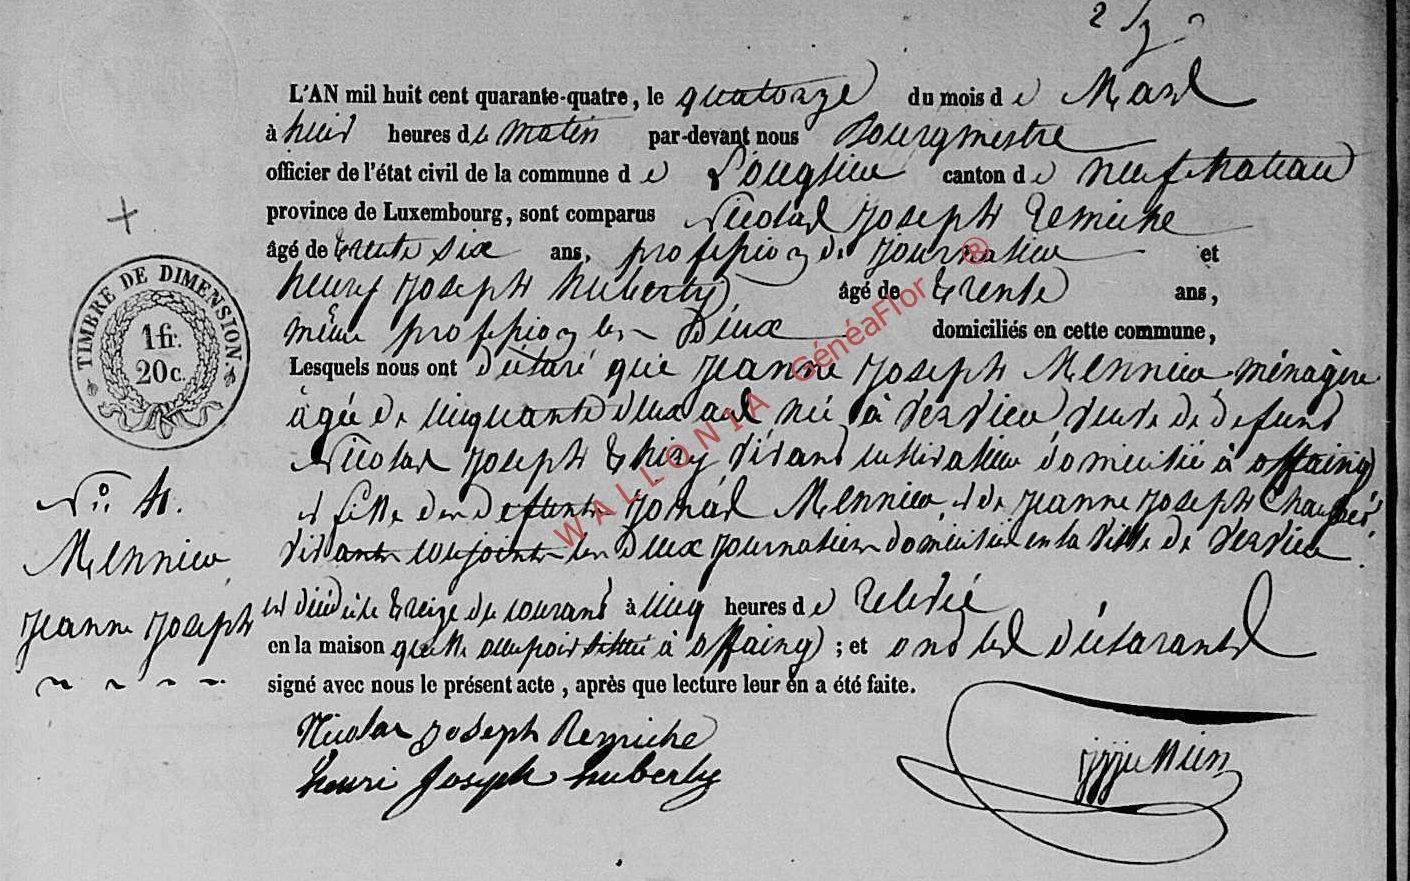 L'AN mil huit cent quarante-quatre, le quatorze du mois de Mars
à huit heures du matin par-devant nous Bourgmestre
officier de l'état civil de la commune de Longlier canton de neufchateau
province de Luxembourg, sont comparus Nicolas Joseph Remiche
âgé de trente six ans, profession de journalier et
henry Joseph huberty, âgé de trente ans,
même profession les Deux domiciliés en cette commune,
Lesquels nous ont déclaré que Jeanne Joseph ménagère
âgée de cinquante deux ans né à Verviers veuve de defunt
Nicolas Joseph thiry vivant cultivateur domicilié à offaing
et fille des defunts Jeanne Joseph
vivants conjoints les deux journaliers domiciliés en la ville de Verviers
est décédée treize du courant à cinq heures de relevée
en la maison quelle occupoit située à offaing ; et ont les déclarants
signé avec nous le présent acte, après que lecture leur en a été faite.
Nicolas Joseph Remiche
henri Joseph huberty
TIMBRE DE DIMENSION
1 fr.
20 c.
No 4.
Jeanne Joseph
WALLONIA GénéaFlor ®